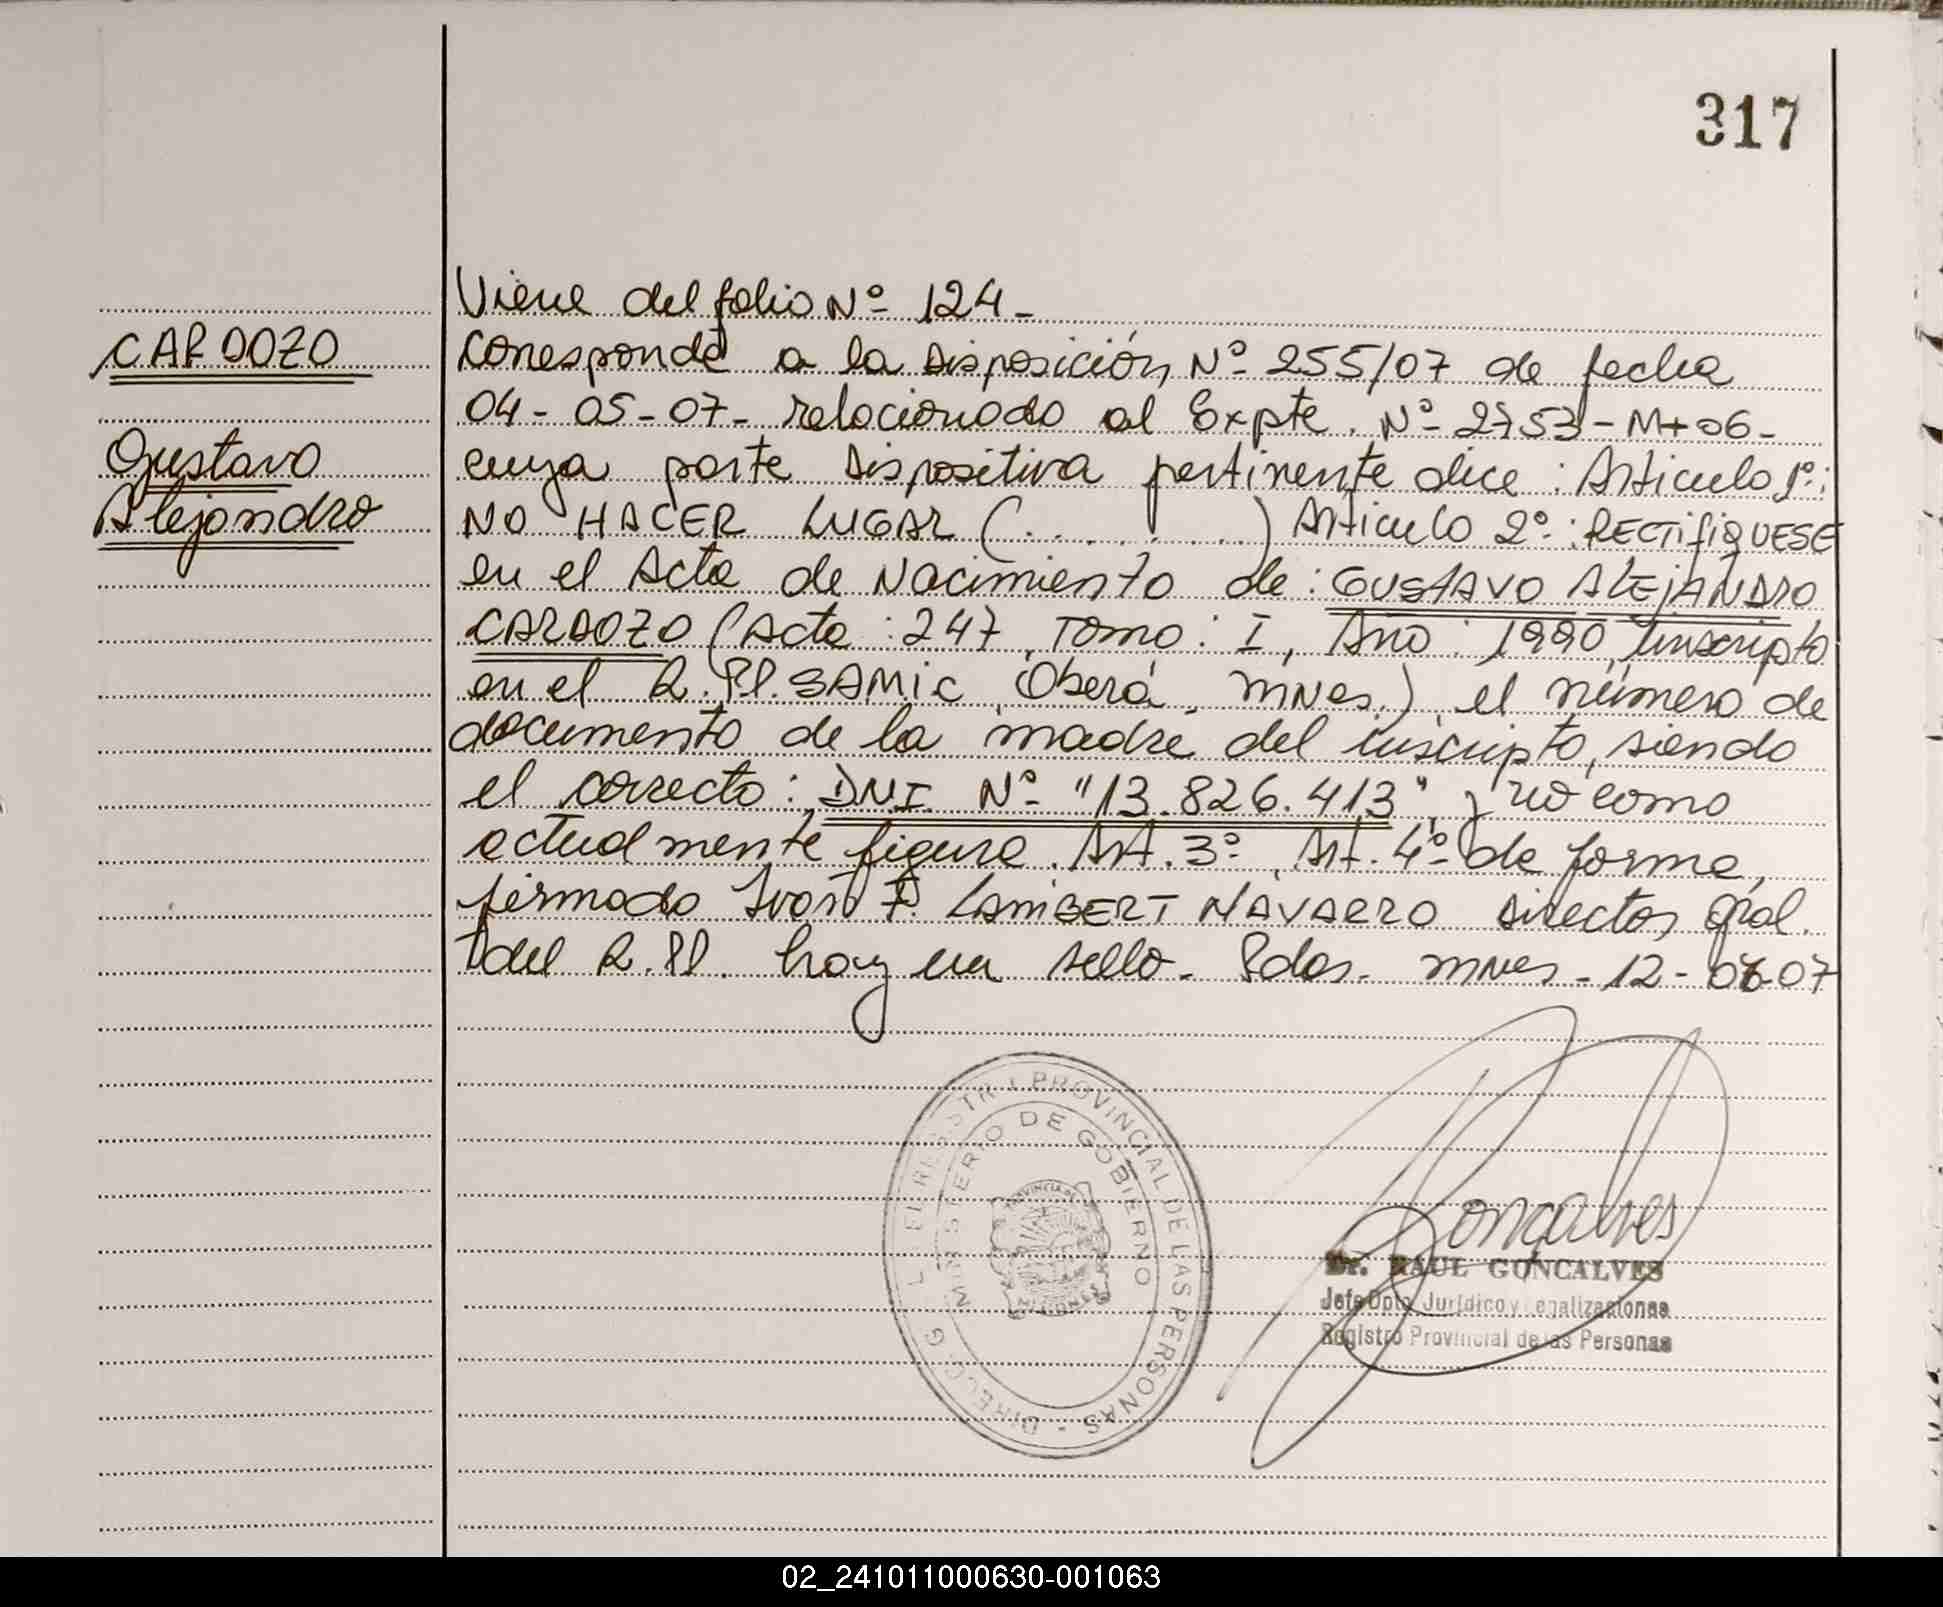 317
Viene del folio Nº 124-
CARDOZO
Corresponde a la Disposición Nº 255/07 de fecha
04-05-07- relacionado al Expte. Nº 2753-M-06-
Gustavo
cuya parte Dispositiva pertinente dice: Articulo 1º:
Alejandro
NO HACER LUGAR (........) Articulo 2º: RECTIFIQUESE
en el Acta de Nacimiento de: GUSTAVO ALEJANDRO
CARDOZO (Acta: 247, Tomo: I, Año: 1990, inscripto
en el R.PP. SAMIC, Oberá, Mnes.), el número de
documento de la madre del inscripto, siendo
el correcto: DNI Nº "13.826.413", y no como
actualmente figura. Art. 3º, Art. 4º de forma,
firmado Iván F. LAMBERT NAVARRO Director Gral.
del R.PP. hay un sello. Pdas. Mnes-12-07
DIRECC. G L. EL REGISTR PROVINCIAL DE LAS PERSONAS -
MINISTERIO DE GOBIERNO
PROVINCIA DE
MISIONES
Goncalves
Dr. RAUL GONCALVES
Jefe Dpto. Jurídico y Legalizaciones
Registro Provincial de las Personas
02_241011000630-001063